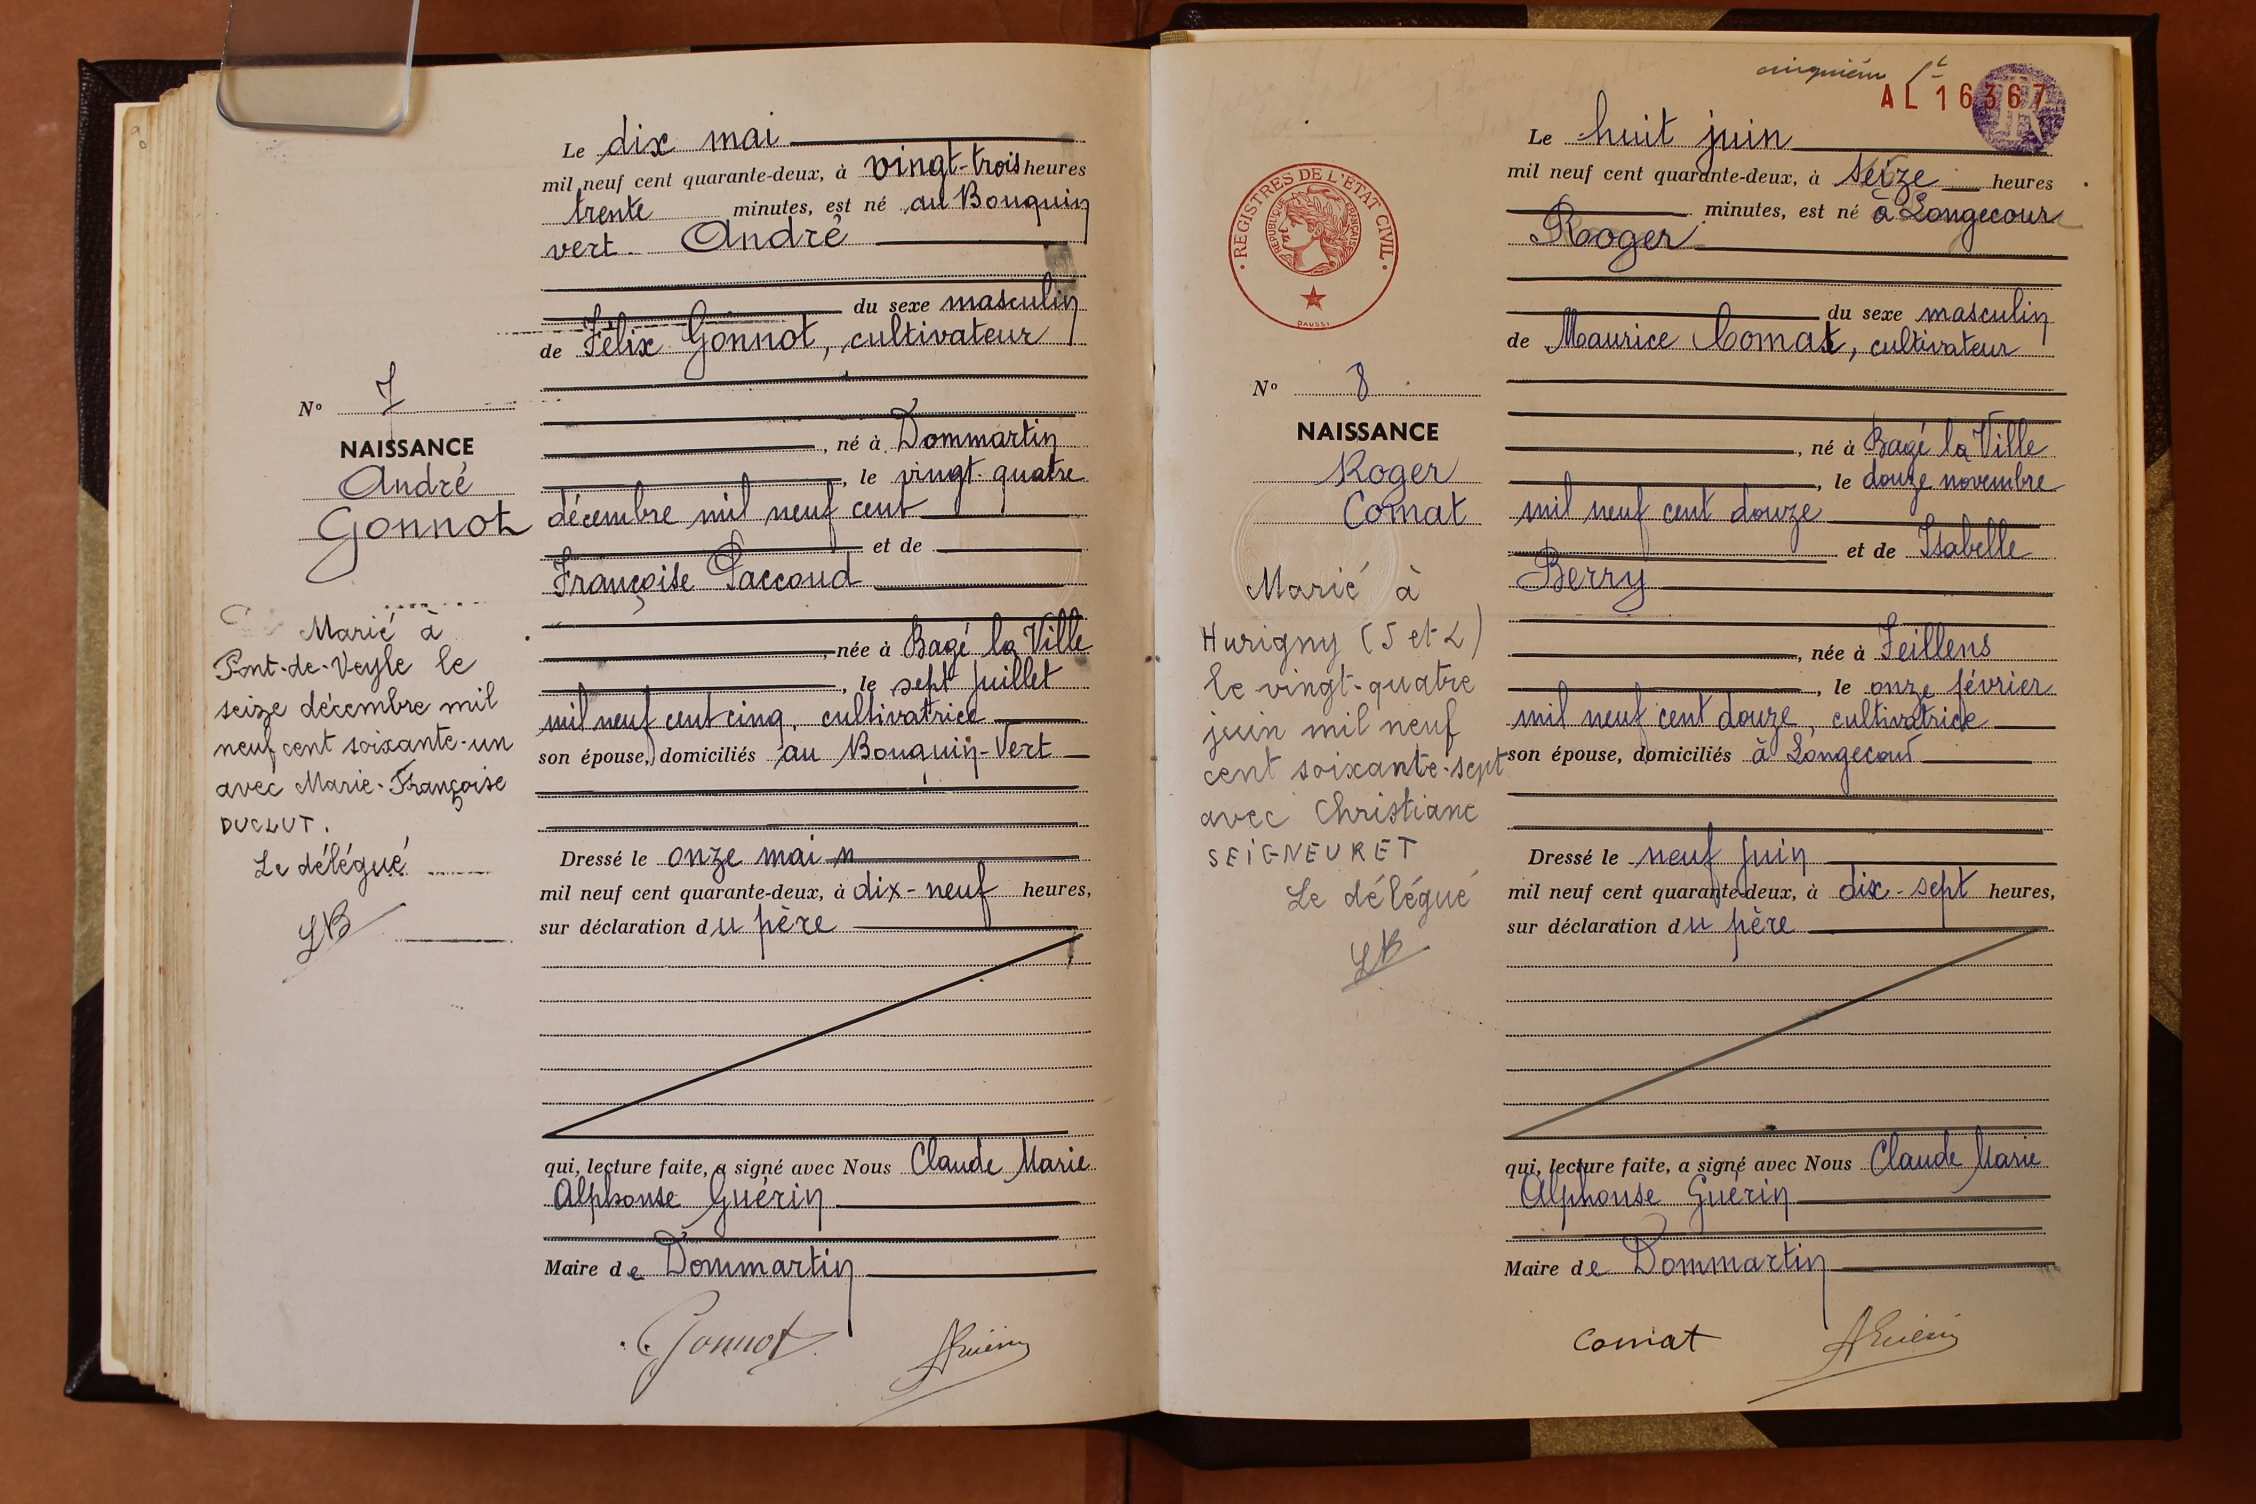 Le dix mai
mil neuf cent quarante-deux, à vingt-trois heures
trente minutes, est né au Bouquin
vert André
du sexe masculin
de Félix Gonnot, cultivateur
né à Dommartin
, le vingt-quatre
décembre mil neuf cent
et de
Françoise Paccoud
, née à Bagé la Ville
, le sept juillet
mil neuf cent cinq, cultivatrice
son épouse, domiciliés au Bouquin-Vert
Dressé le onze mai
mil neuf cent quarante-deux, à dix-neuf heures,
sur déclaration du père
qui, lecture faite, a signé avec Nous Claude Marie
Alphonse Guérin
Maire de Dommartin
Gonnot AGuérin
N° 7
NAISSANCE
André
Gonnot
Marié à
Pont-de-Veyle le
seize décembre mil
neuf cent soixante-un
avec Marie-Françoise
DUCLUT.
Le délégué
LB
cinquième
AL 16367
Le huit juin
mil neuf cent quarante-deux, à seize heures
minutes, est né à Longecour
Roger
du sexe masculin
de Maurice Comat, cultivateur
, né à Bagé la Ville
, le douze novembre
mil neuf cent douze
et de Isabelle
Berry
, née à Feillens
, le onze février
mil neuf cent douze, cultivatrice
son épouse, domiciliés à Longecour
Dressé le neuf juin
mil neuf cent quarante-deux, à dix-sept heures,
sur déclaration du père
qui, lecture faite, a signé avec Nous Claude Marie
Alphonse Guérin
Maire de Dommartin
Comat AGuérin
REGISTRES DE L'ÉTAT CIVIL
RÉPUBLIQUE FRANÇAISE
DAUSSI
N° 8
NAISSANCE
Roger
Comat
Marié à
Hurigny (S et L)
le vingt-quatre
juin mil neuf
cent soixante-sept
avec Christiane
SEIGNEURET
Le délégué
LB